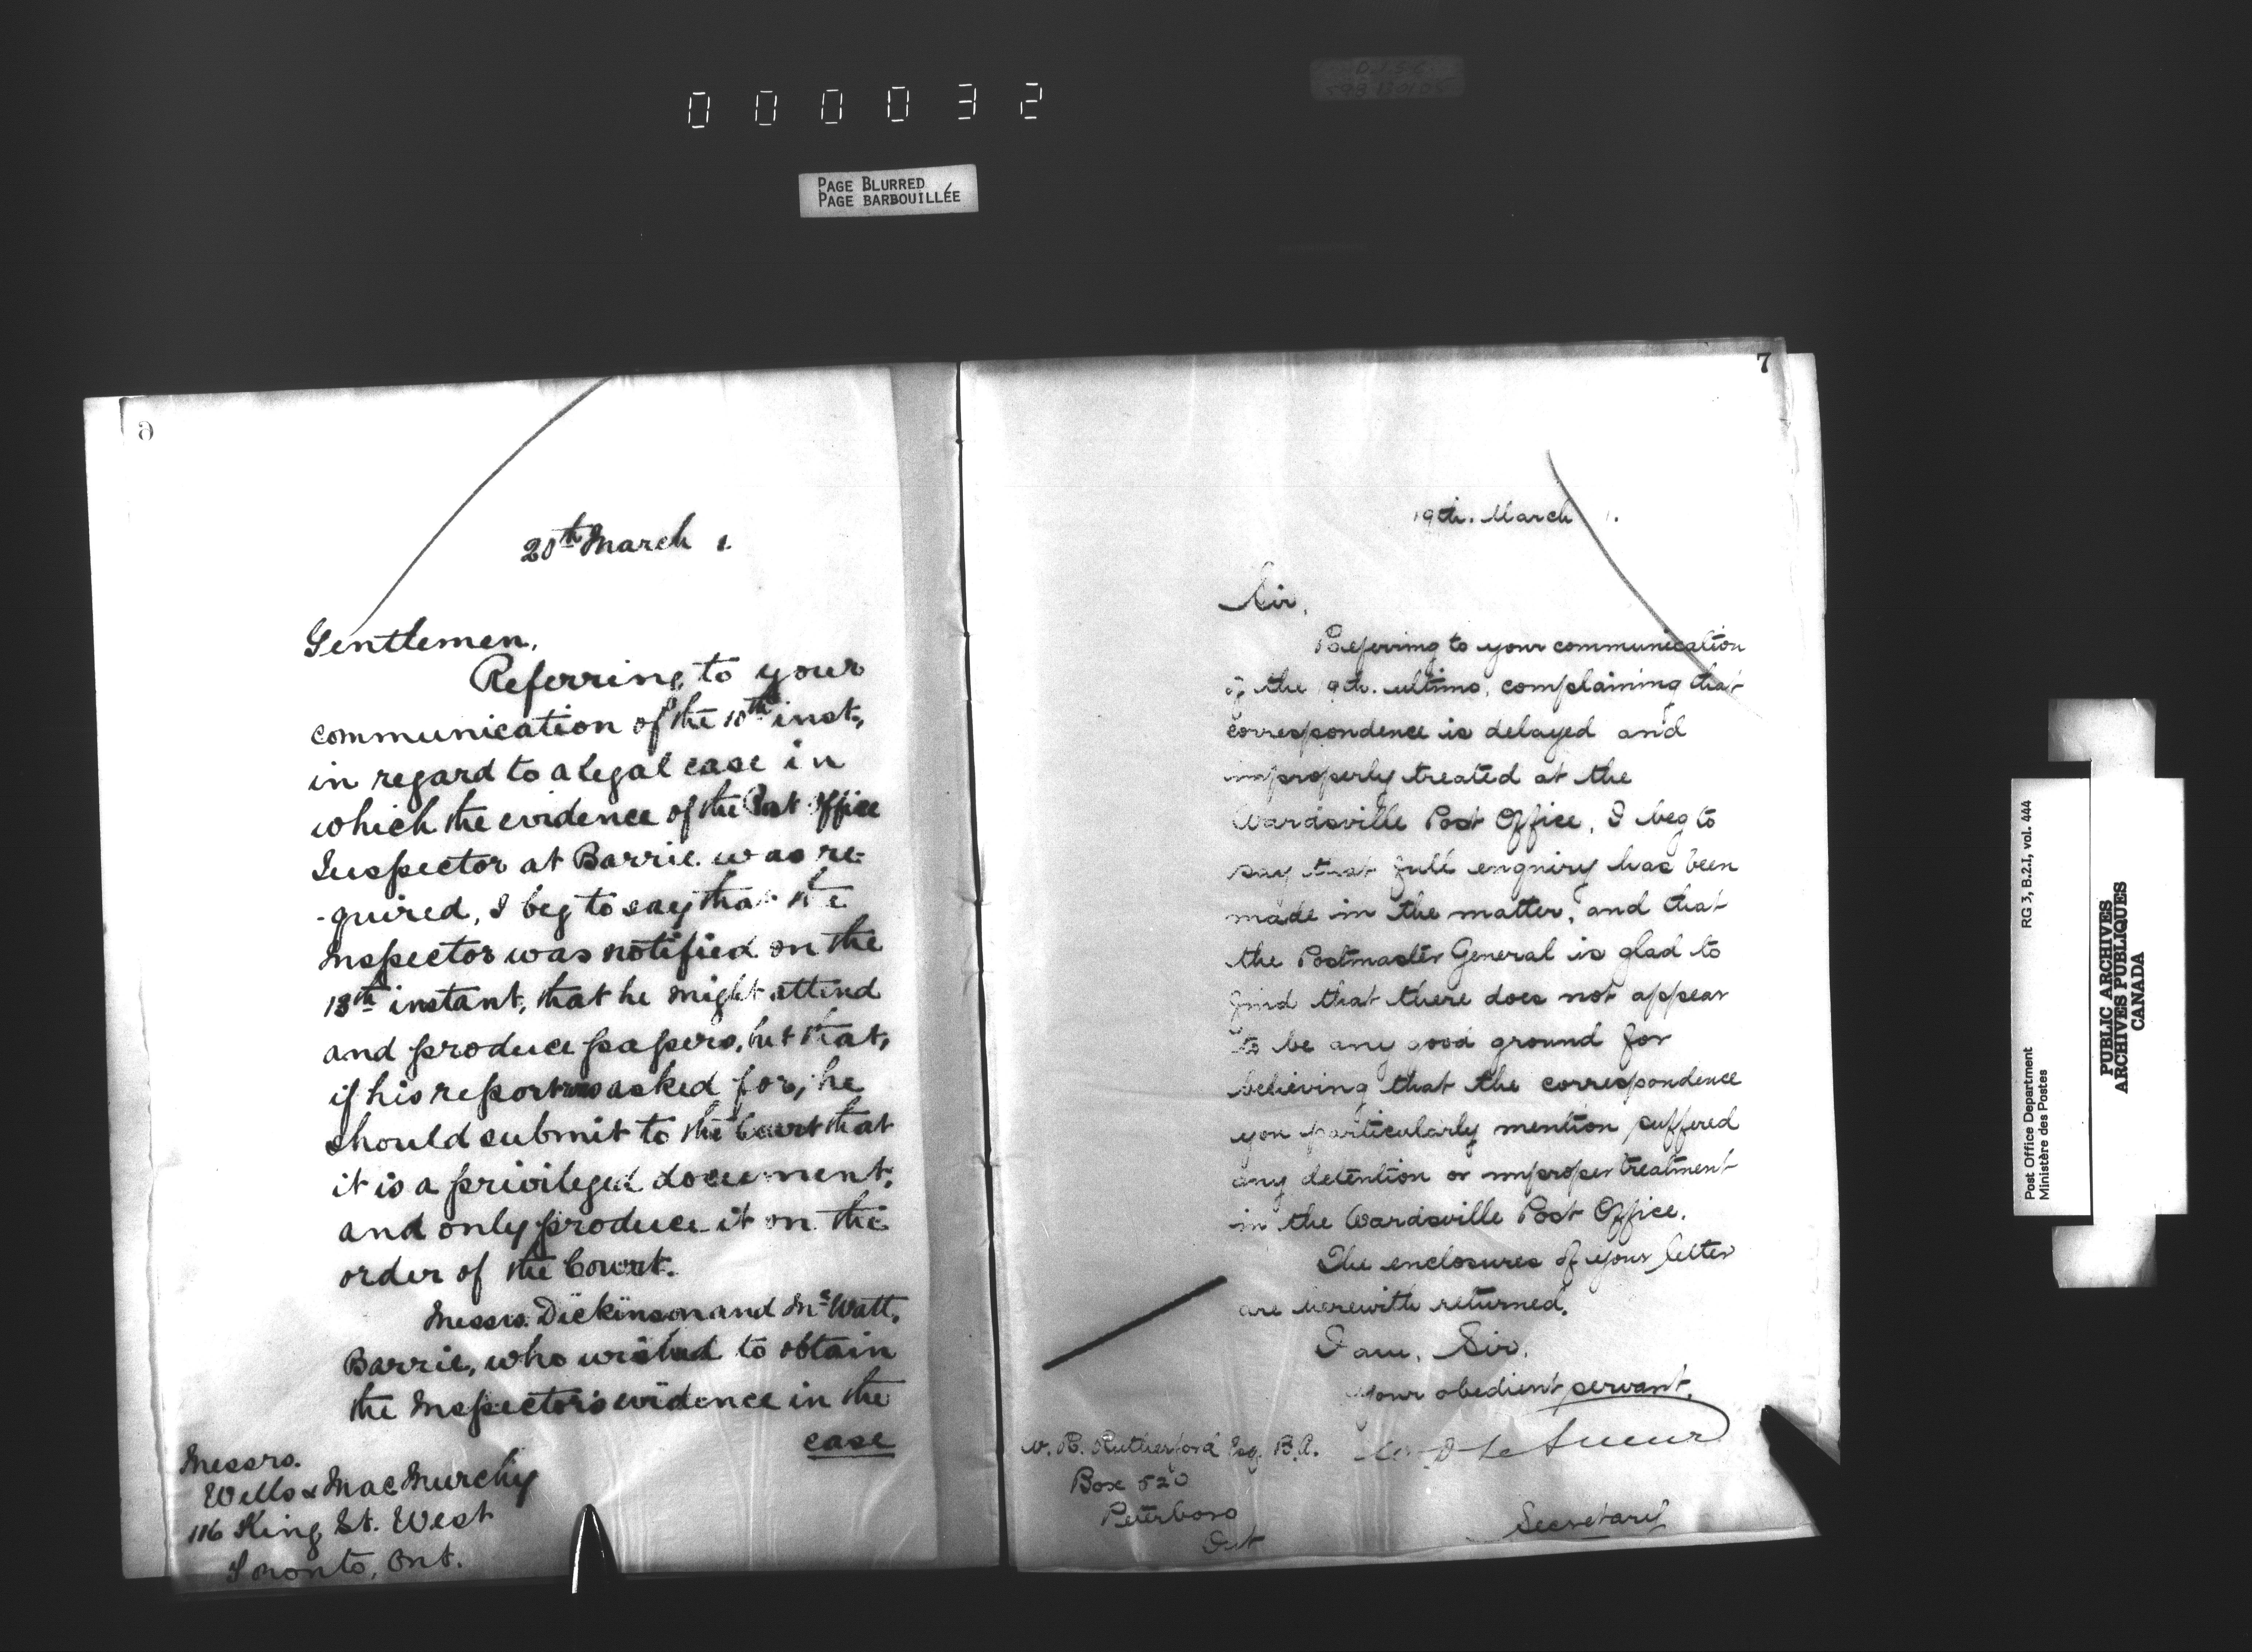 000032
PAGE BLURRED
PAGE BARBOUILLÉE
6
20th March 1.
Gentlemen,
Referring to your
communication of the 10th inst,
in regard to a legal case in
which the evidence of the Post Office
Inspector at Barrie was re-
-quired, I beg to say that the
Inspector was notified on the
13th instant, that he might attend
and produce papers, but that,
if his report was asked for, he
should submit to the Court that
it is a privileged document,
and only produce it on the
order of the Court.
Messrs. Dickinson and McWatt,
Barrie, who wished to obtain
the Inspector's evidence in the
case
Messrs.
Wells & MacMurchy
116 King St. West
Toronto, Ont.
7
19th. March 1.
Sir,
Referring to your communication
of the 19th. ultimo, complaining that
correspondence is delayed and
improperly treated at the
Wardsville Post Office, I beg to
say that full enquiry has been
made in the matter, and that
the Postmaster General is glad to
find that there does not appear
to be any good ground for
believing that the correspondence
you particularly mention suffered
any detention or improper treatment
in the Wardsville Post Office.
The enclosures of your letter
are herewith returned.
I am, Sir,
Your obedient servant,
W. D. LeSueur
Secretary
W. R. Rutherford Esq. B.A.
Box 520
Peterboro
Ont
Post Office Department
Ministère des Postes
RG 3, B.2.I, vol. 444
PUBLIC ARCHIVES
ARCHIVES PUBLIQUES
CANADA